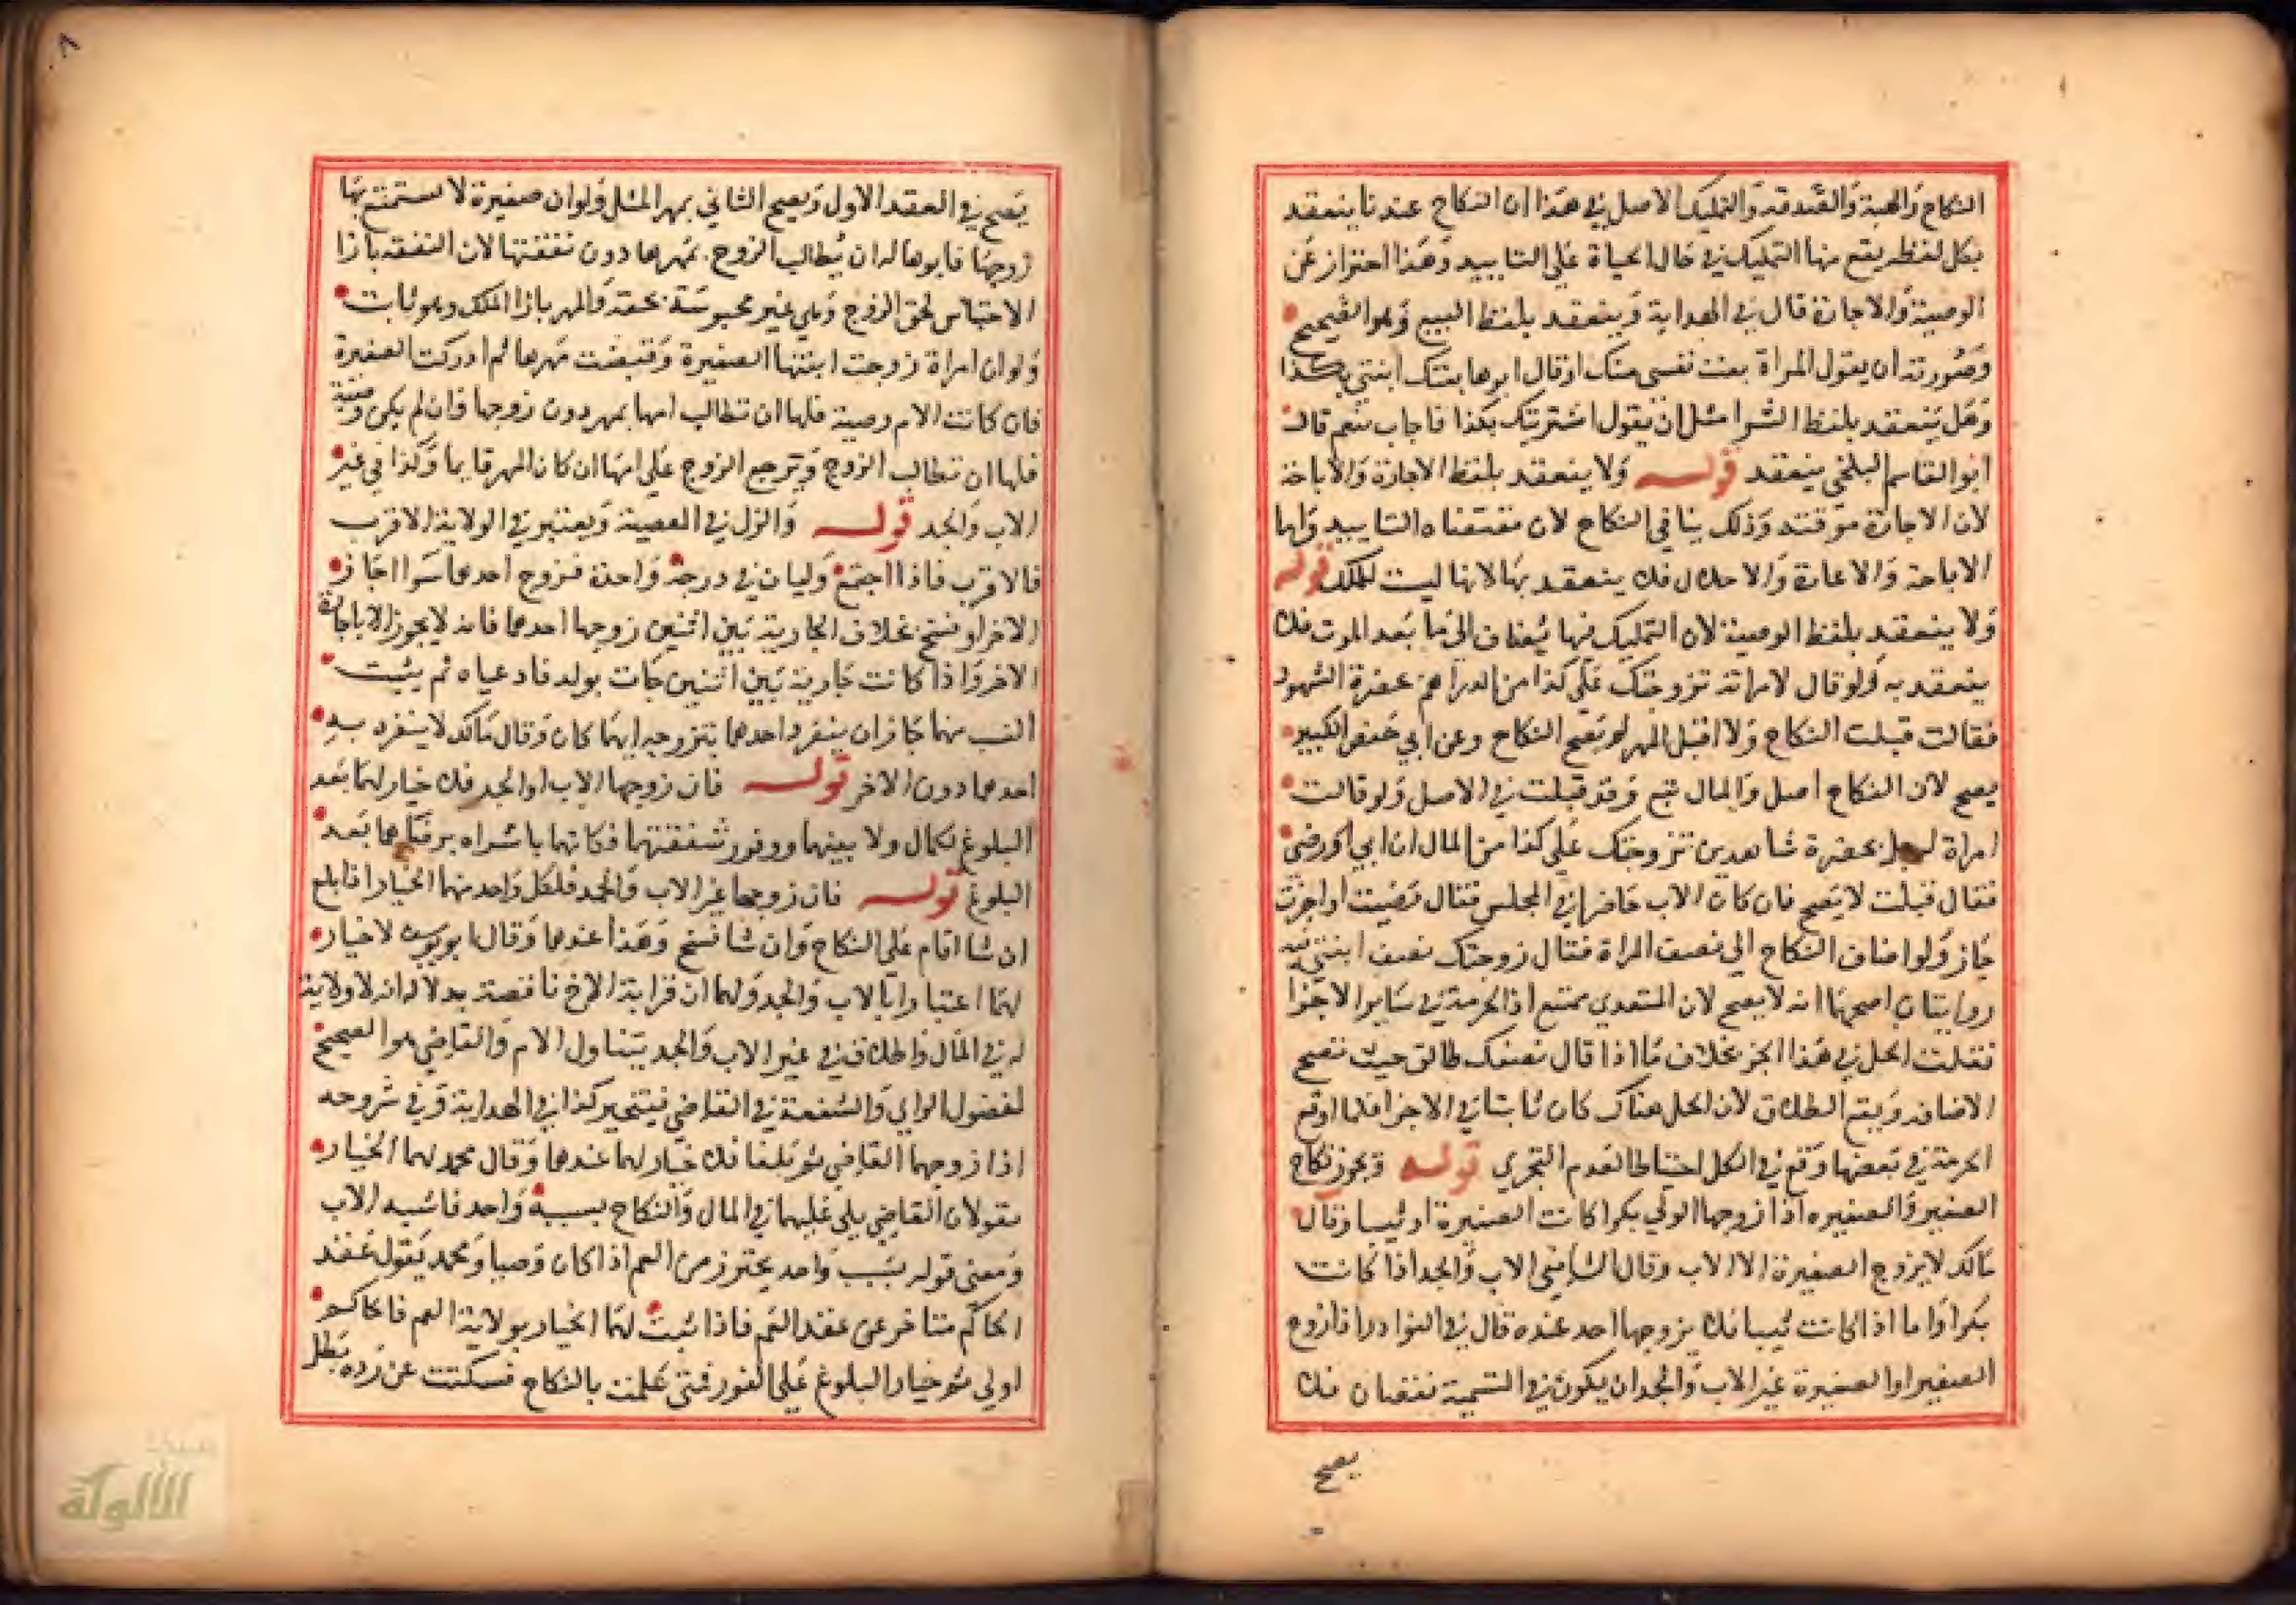 النكاح والهبة والصدقة والتمليك الاصل في هذا ان النكاح عندنا ينعقد
بكل لفظ يقع منها التمليك في حال الحياة على التابيد وهذا احتراز عن
الوصية والاجارة قال في الهداية وينعقد بلفظ البيع وهو الصحيح
وصورته ان يقول المراة بعت نفسي منك او قال ابوها بعتك ابنتي بكذا
وهل ينعقد بلفظ الشرا مثل ان يقول اشتريتك بكذا فاجاب بنعم قال
ابو القاسم البلخي ينعقد قوله ولا ينعقد بلفظ الاجارة والاباحة
لان الاجارة موقتة وذلك ينافي النكاح لان مقتضاه التابيد واما
الاباحة والاعارة والاحلال فلا ينعقد بها لانها ليست لملك قوله
ولا ينعقد بلفظ الوصية لان التمليك فيها يضاف الى ما بعد الموت فلا
ينعقد به ولو قال لامراته تزوجتك على كذا من الدراهم بحضرة الشهود
فقالت قبلت النكاح ولا اقبل المهر لم يصح النكاح وعن ابي حفص الكبير
يصح لان النكاح اصل والمال تبع وقد قبلت في الاصل ولو قالت
امراة لرجل بحضرة شاهدين تزوجتك على كذا من المال ان ابي او رضي
فقال قبلت لا يصح فان كان الاب حاضرا في المجلس فقال رضيت او اجزت
جاز ولو اضاف النكاح الى نصف المراة فقال زوجتك نصف ابنتي فيه
روايتان اصحهما انه لا يصح لان المتعدي ممتنع اذ الحرمة في سايرا الاجزا
فقلت الحل في هذا الجز بخلاف ما اذا قال نصفك طالق حيث تصح
الاضافه ويقع الطلاق لان الحل هناك كان ثابتا في الاجزا فلما اوقع
الحرمة في بعضها وقع في الكل احتياطا لعدم التجزي قوله ويجوز نكاح
الصغير والصغيره اذا زوجها الولي بكرا كانت الصغيرة او ثيبا وقال
مالك لا يزوج الصغيرة الا الاب وقال الشافعي الاب والجد اذا كانت
بكرا واما اذا كانت ثيبا فلا يزوجها احد عنده قال في النوادر اذا زوج
الصغير او الصغيرة غير الاب والجد ان يكون في التسمية نقصان فلا
يصح
٨
يصح في العقد الاول ويصح الثاني بمهر المثل ولو ان صغيرة لا يستمتع بها
زوجها فابوها له ان يطالب الزوج بمهرها دون نفقتها لان النفقه بازا
الاحتباس لحق الزوج وهي غير محبوسة بحقه والمهر بازا الملك وهو ثابت
ولو ان امراة زوجت ابنتها الصغيرة وقبضت مهرها ثم ادركت الصغيرة
فان كانت الام وصية فلها ان تطالب امها بمهر دون زوجها فان لم يكن وصية
فلها ان تطالب الزوج ويرجع الزوج على امها ان كان المهر قايما وكذا في غير
الاب والجد قوله والولي العصبة ويعتبر في الولاية الاقرب
فالاقرب فاذا اجتمع وليان في درجة واحدة فزوج احدهما سوا اجاز
الاخر او فسخ بخلاف الجارية بين اثنين زوجها احدهما فانه لا يجوز الا باجازة
الاخر واذا كانت جارية بين اثنين جات بولد فادعياه ثم يثبت
النسب منهما جاز ان ينفرد احدهما بتزويجه ايهما كان وقال مالك لا ينفرد به
احدهما دون الاخر قوله فان زوجها الاب او الجد فلا خيار لهما بعد
البلوغ لكمال ولايتهما ووفور شفقتهما فكانهما باشراه برضاهما بعد
البلوغ قوله فان زوجهما غير الاب والجد فلكل واحد منهما الخيار اذا بلغ
ان شا اقام على النكاح وان شا فسخ وهذا عندهما وقال ابو يوسف لا خيار
لهما اعتبارا بالاب والجد ولهما ان قرابة الاخ ناقصة بدلالة انه لا ولاية
له في المال واطلاقه في غير الاب والجد يتناول الام والقاضي هو الصحيح
لقصور الراي والشفقة في القاضي فيتخير كذا في الهداية وفي شروحه
اذا زوجهما القاضي ثم بلغا فلا خيار لهما عندهما وقال محمد لهما الخيار
يقول ان القاضي يلي عليهما في المال والنكاح بسبب واحد فاشبه الاب
ومعنى قوله بسبب واحد يحترز من العم اذا كان وصيا ومحمد يقول عقد
الحاكم متاخر عن عقد العم فاذا ثبت لهما الخيار بولاية العم فالحاكم
اولى ثم خيار البلوغ على الفور فمتى علمت بالنكاح فسكتت عن رده بطل
الألوكة